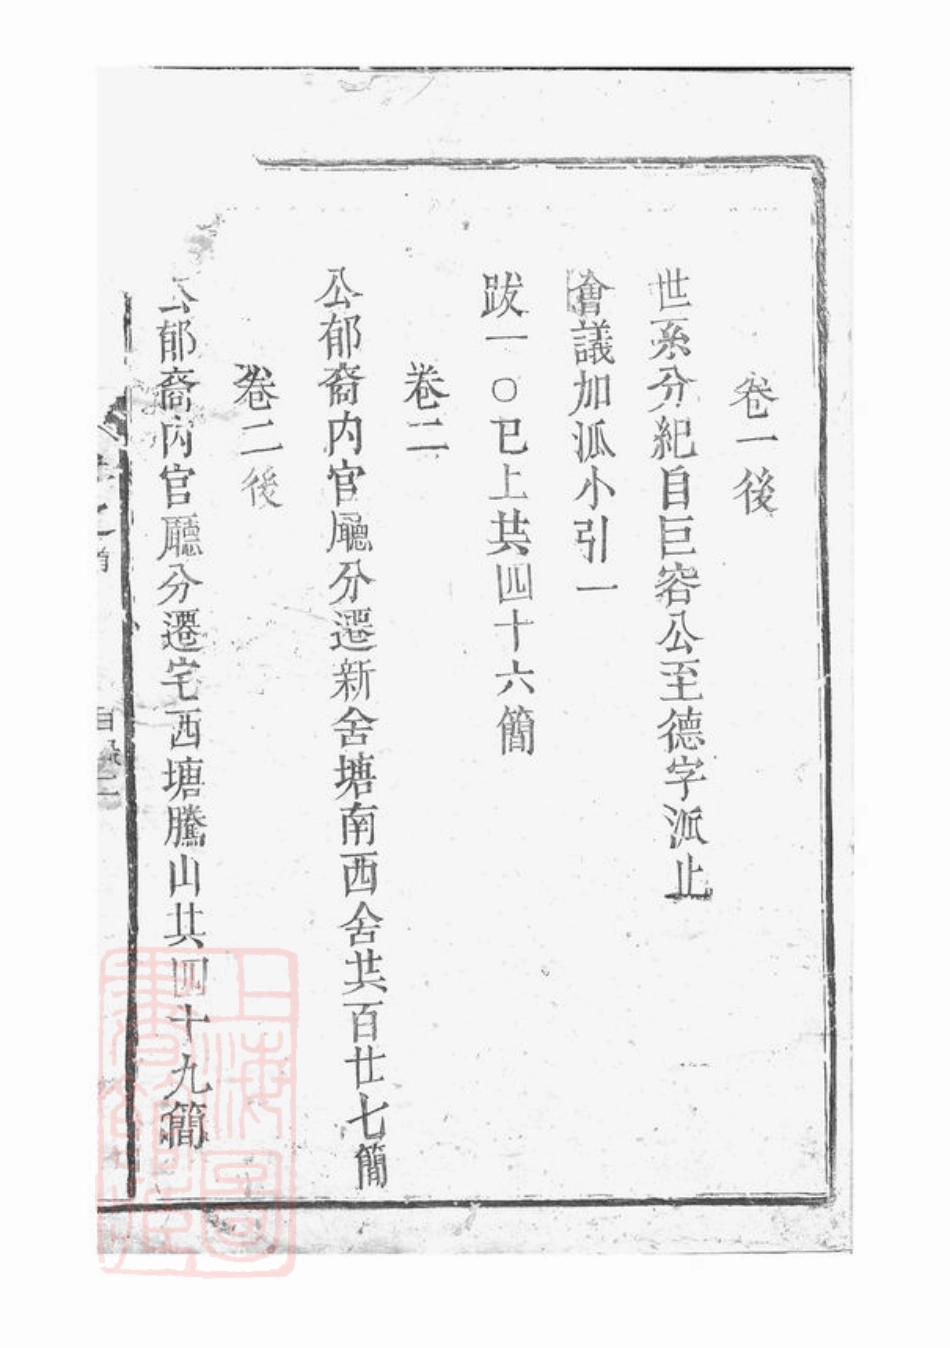 卷一後
世系分紀自巨容公至德字派止
會議加派小引一
跋一〇已上共四十六簡
卷二
公郁裔內官廳分遷新舍塘南西舍共百廿七簡
卷二後
公郁裔內官廳分遷宅西塘騰山共四十九簡
首
目錄二
上海圖書館藏